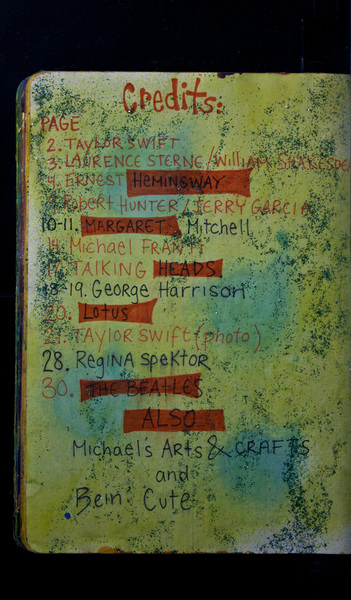 Credits:
PAGE
2. TAYLOR SWIFT
3. LAURENCE STERNE/William SHAKESPE
4. ERNEST HEMINGWAY
Robert HUNTER / JERRY GARCIA
10-11. MARGARET Mitchell
14. Michael FRANTI
TALKING HEADS
18-19. George Harrison
20. Lotus
TAYLOR SWIFT (photo)
28. REGINA SPEKTOR
30. THE BEATLES
ALSO
Michael's Arts & CRAFTS
and
Bein' Cute